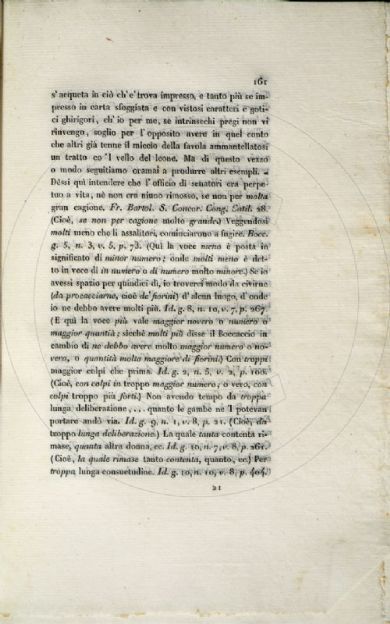 161
s'acqueta in ciò ch'e' trova impresso, e tanto più se im-
presso in carta sfoggiata e con vistosi caratteri e goti-
ci ghirigori, ch'io per me, se intrinsechi pregi non vi
rinvengo, soglio per l'opposito avere in quel conto
che altri già tenne il miccio della favola ammantellatosi
un tratto co 'l vello del leone. Ma di questo vezzo
o modo seguitiamo oramai a produrre altri esempli. =
Dèssi quì intendere che l'officio di senatori era perpe-
tuo a vita, nè non era niuno rimosso, se non per molta
gran cagione. Fr. Bartol. S. Concor. Cong. Catil. 28.
(Cioè, se non per cagione molto grande.) Veggendosi
molti meno che li assalitori, cominciarono a fugire. Bocc.
g. 5, n. 3, v. 5, p. 73. (Quì la voce meno è posta in
significato di minor numero; onde molti meno è det-
to in vece di in numero o di numero molto minore.) Se io
avessi spazio per quindici dì, io troverei modo da civirne
(da procacciarne, cioè de' fiorini) d'alcun luogo, d'onde
io ne debbo avere molti più. Id. g. 8, n. 10, v. 7, p. 267.
(E quì la voce più vale maggior novero o numero o
maggior quantità; sicchè molti più disse il Boccaccio in
cambio di ne debbo avere molto maggior numero o no-
vero, o quantità molto maggiore di fiorini.) Con troppi
maggior colpi che prima. Id. g. 2, n. 5, v. 2, p. 100.
(Cioè, con colpi in troppo maggior numero; o vero, con
colpi troppo più forti.) Non avendo tempo da troppa
lunga deliberazione, ... quanto le gambe ne 'l potevan
portare andò via. Id. g. 9, n. 1, v. 8, p. 21. (Cioè, da
troppo lunga deliberazione.) La quale tanta contenta ri-
mase, quanta altra donna, ec. Id. g. 10, n. 7, v. 8, p. 261.
(Cioè, la quale rimase tanto contenta, quanto, ec.) Per
troppa lunga consuetudine. Id. g. 10, n. 10, v. 8, p. 404.
21